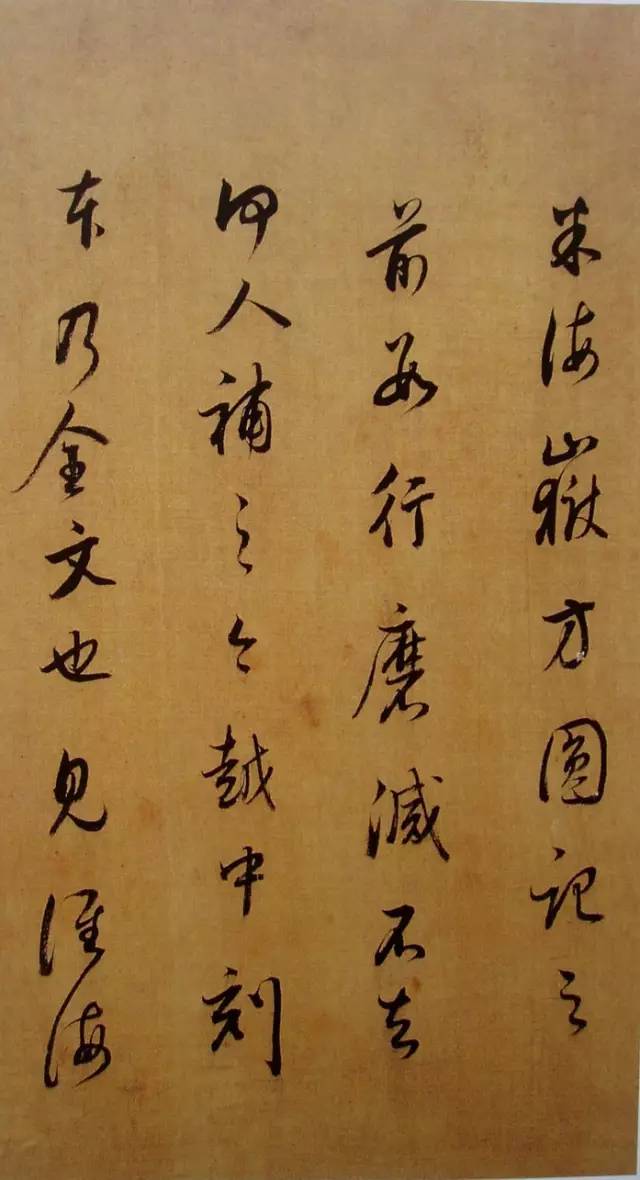 米海嶽方圓記之
前數行磨滅不知
何人補之今越中刻
本乃全文也見淮海